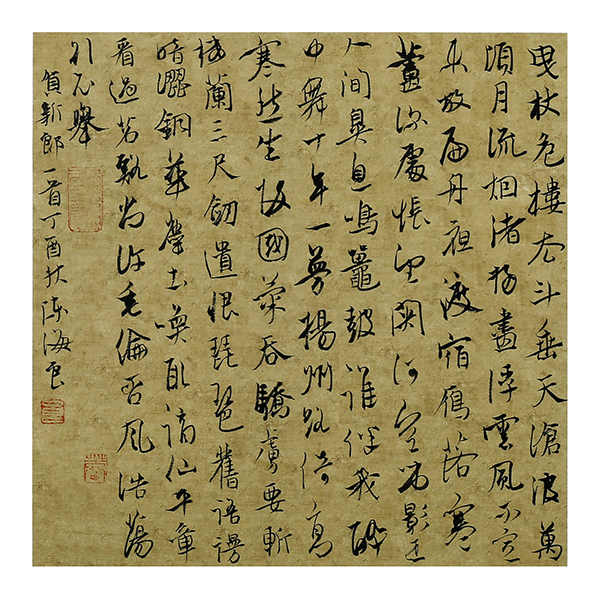 曳杖危樓去斗垂天滄波萬
頃月流烟渚掃盡浮雲風不定
未放扁舟夜渡宿鴈落寒
蘆深處悵望關河空弔影正
人間鼻息鳴鼉鼓誰伴我醉
中舞十年一夢楊州路倚高
寒愁生故國氣吞驕虜要斬
樓蘭三尺劒遺恨琵琶舊語謾
暗澀銅華塵土喚取謫仙平章
看過苕溪尚許垂綸否風浩蕩
欲飛舉
賀新郎一首丁酉秋陳海良